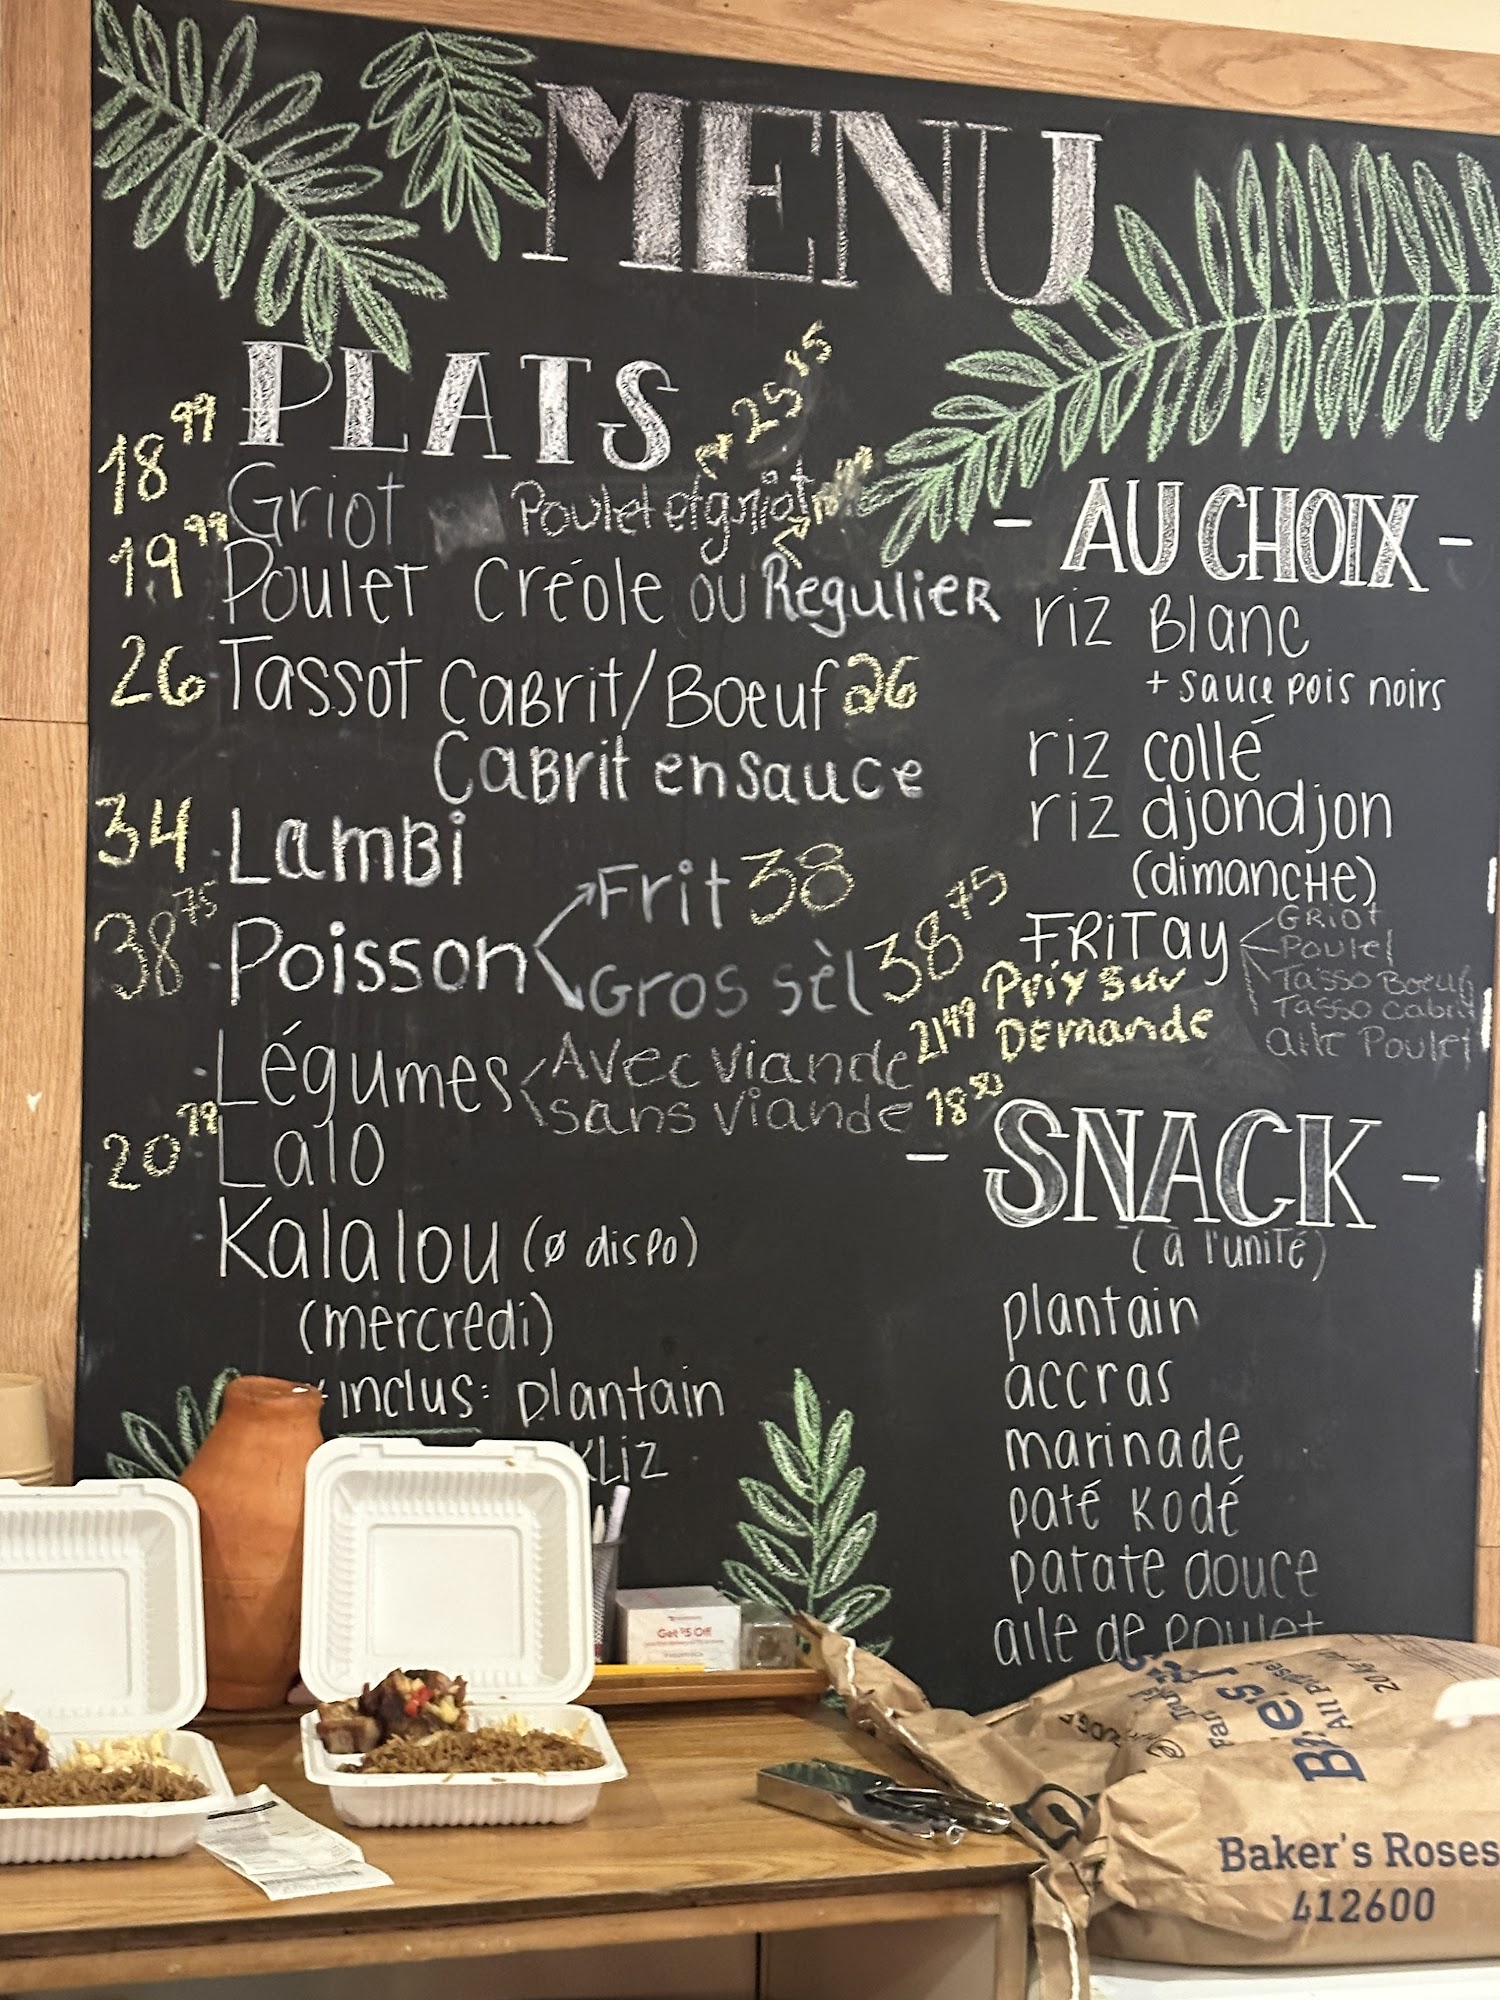 MENU
PLATS
25 15
18 99 Griot Poulet et griot
19 99 Poulet Créole ou Regulier
26 Tassot Cabrit/Boeuf 26
Cabrit en sauce
34 Lambi
38 75 Poisson
Frit 38
Gros sèl 38 75
Légumes
Avec viande 21 49
sans viande 18 50
20 79 Lalo
Kalalou (ø dispo)
(mercredi)
Inclus: plantain
KLIZ
- AU CHOIX -
riz Blanc
+ sauce pois noirs
riz collé
riz djondjon
(dimanche)
FRITAY
Griot
Poulet
Tasso Boeuf
Tasso Cabrit
aile Poulet
Prix sur
Demande
- SNACK -
(à l'unité)
plantain
accras
marinade
paté Kodé
patate douce
aile de poulet
Get $5 Off
All Purpose
20 kg
Baker's Roses
412600